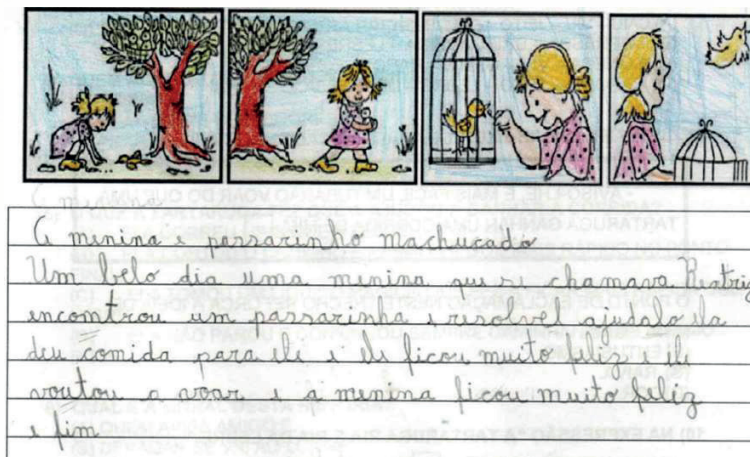 A menina
A menina e passarinho machucado
Um belo dia uma menina que se chamava Beatriz
encomtrou um passarinha e resolvel ajudalo ela
deu comida para ele e ele ficou muito feliz e ele
voutou a voar e a menina ficou muito feliz
e fim